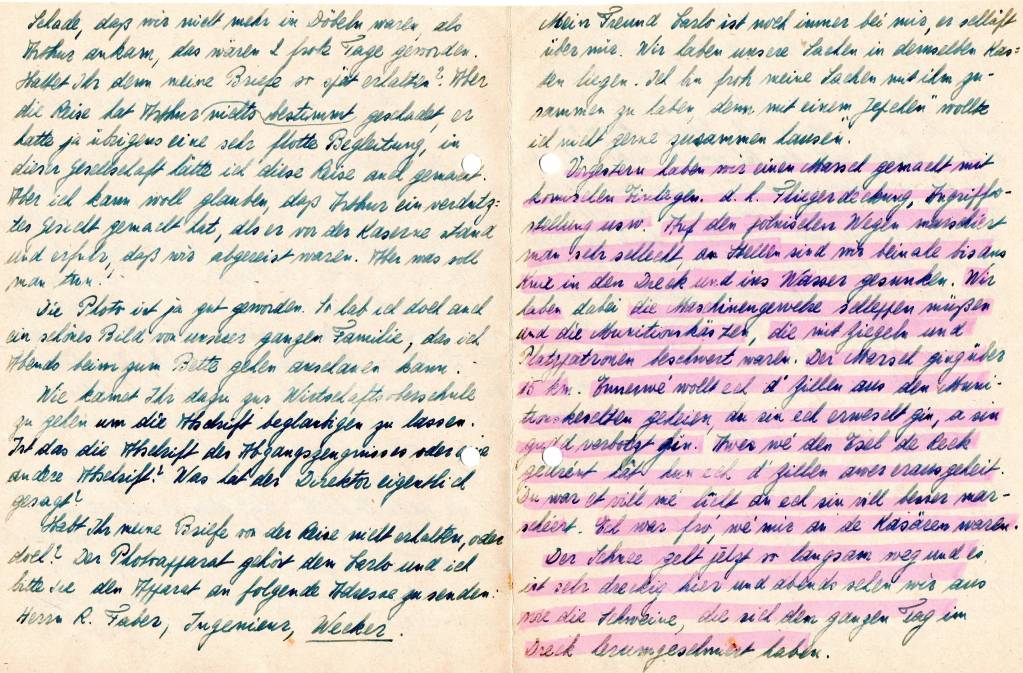 Schade, daß wir nicht mehr in Döbeln waren, als
Arthur ankam, das wären 2 frohe Tage geworden.
Hattet Ihr denn meine Briefe so spät erhalten? Aber
die Reise hat Arthur nichts bestimmt geschadet, er
hatte ja übrigens eine sehr flotte Begleitung, in
dieser Gesellschaft hätte ich diese Reise auch gemacht.
Aber ich kann woll glauben, daß Arthur ein verdutz-
tes Gesicht gemacht hat, als er vor der Kaserne stand
und erfuhr, daß wir abgereist waren. Aber was soll
man tun!
Die Photo ist ja gut geworden. So hab ich doch auch
ein schönes Bild von unserer ganzen Familie, das ich
Abends beim zum Bette gehen anschauen kann.
Wie kamet Ihr dazu zur Wirtschaftsoberschule
zu gehen um die Abschrift beglaubigen zu lassen.
Ist das die Abschrift des Abgangszeugnisses oder eine
andere Abschrift? Was hat der Direktor eigentlich
gesagt?
Habt Ihr meine Briefe von der Reise nicht erhalten, oder
doch? Der Photoapparat gehört dem Carlo und ich
bitte Sie den Apparat an folgende Adresse zu senden:
Herrn R. Faber, Ingenieur, Wecker.
Mein Freund Carlo ist noch immer bei mir, er schläft
über mir. Wir haben unsere Sachen in demselben Kas=
ten liegen. Ich bin froh meine Sachen mit ihm zu-
sammen zu haben, denn mit einem "Jepchen" wollte
ich nicht gerne zusammen hausen.
Vorgestern haben wir einen Marsch gemacht mit
komischen Einlagen. d. h. Fliegerdeckung, Angriffs-
stellung usw. Auf den polnischen Wegen marschiert
man sehr schlecht, an Stellen sind wir beinahe bis ans
Knie in den Dreck und ins Wasser gesunken. Wir
haben dabei die Maschinengewehre schleppen müßen
und die Munitionskästen, die mit Ziegeln und
Platzpatronen beschwert waren. Der Marsch ging über
15 km. Ennerwé wollt ech d' Zillen aus den Muni-
tiounskëschten geheien, du sin ech erwëscht gin, a sin
gudd verbotzt gin. Awer wé den Esel de Réck
gedréint hat hun ech d' Zillen awer erausgeheit.
Du war et vill mé liicht an ech sin vill besser mar-
schéiert. Ech war fro', wé mir an de Kasären waren.
Der Schnee geht jetzt so langsam weg und es
ist sehr dreckig hier und abends sehen wir aus
wie die Schweine, die sich den ganzen Tag im
Dreck herumgeschmiert haben.